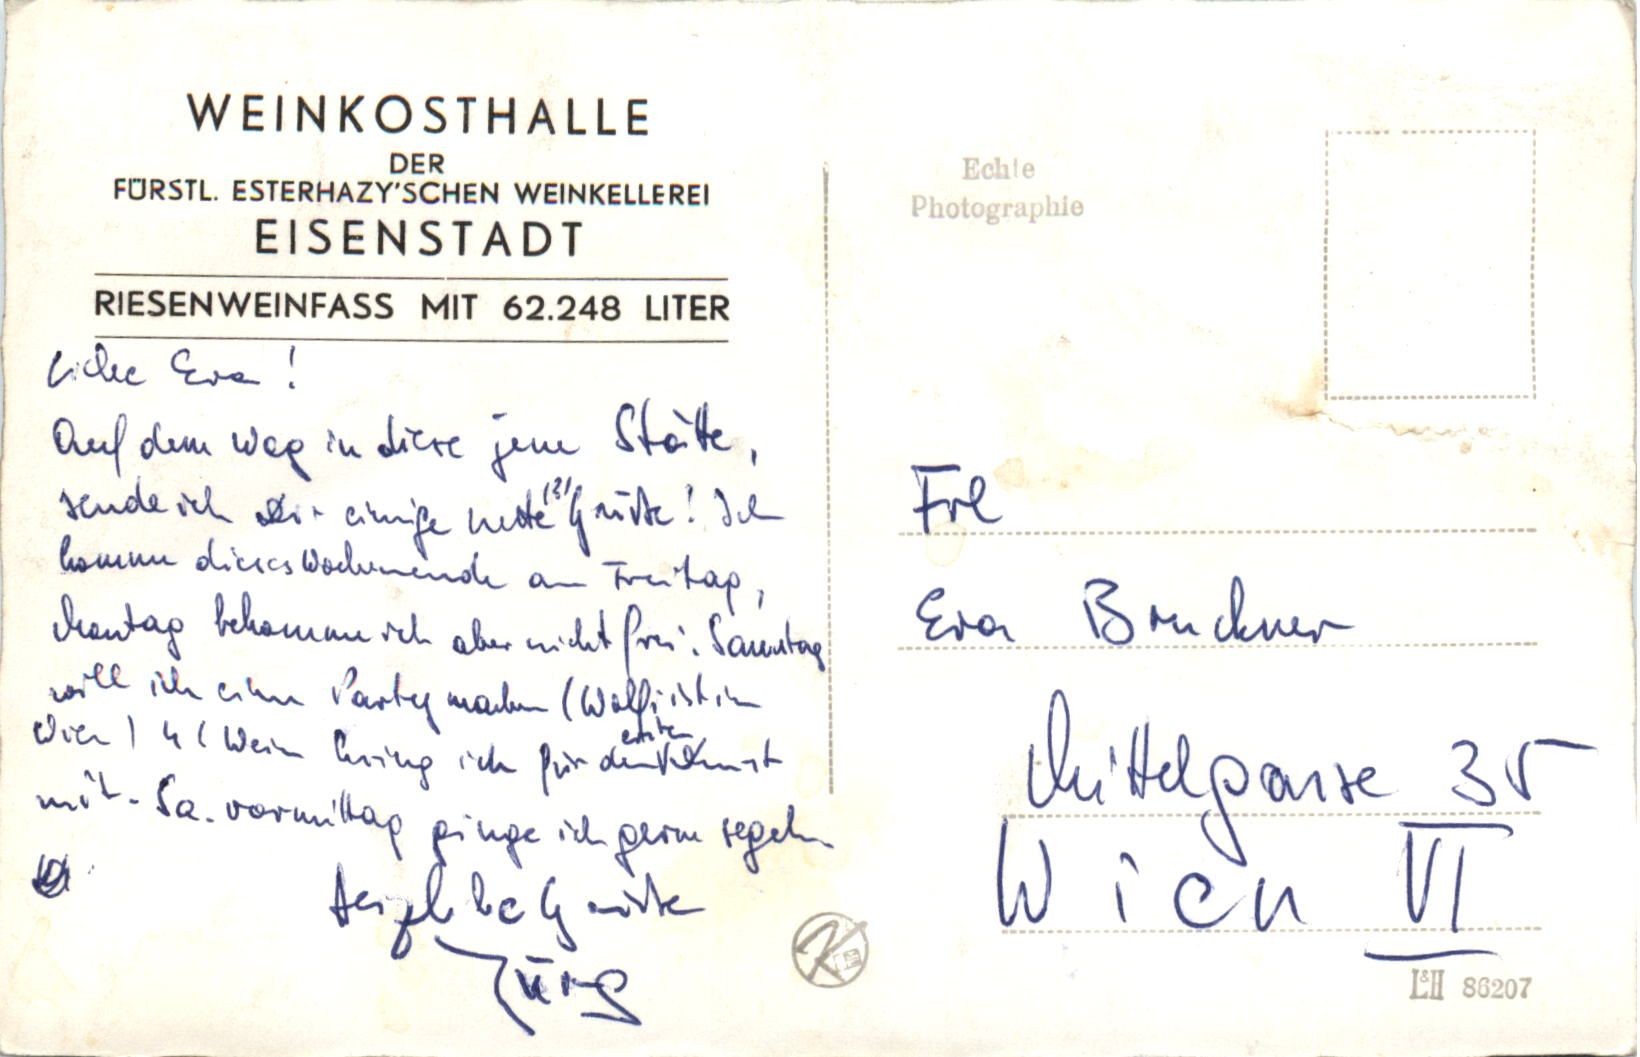 WEINKOSTHALLE
DER
FÜRSTL. ESTERHAZY'SCHEN WEINKELLEREI
EISENSTADT
RIESENWEINFASS MIT 62.248 LITER
Liebe Eva!
Auf dem Weg in diese jene Stätte,
sende ich Dir einige nette (?) Grüße! Ich
komme dieses Wochenende am Freitag,
Montag bekomme ich aber nicht frei. Samstag
will ich eine Party machen (Wolfi ist in
Wien) 4 l Wein bring ich für den ersten
mit - Sa. vormittag ginge ich gerne segeln
Herzliche Grüße
Jürg
Echte
Photographie
Frl
Eva Bruckner
Mittelgasse 35
Wien VI
L&H 86207